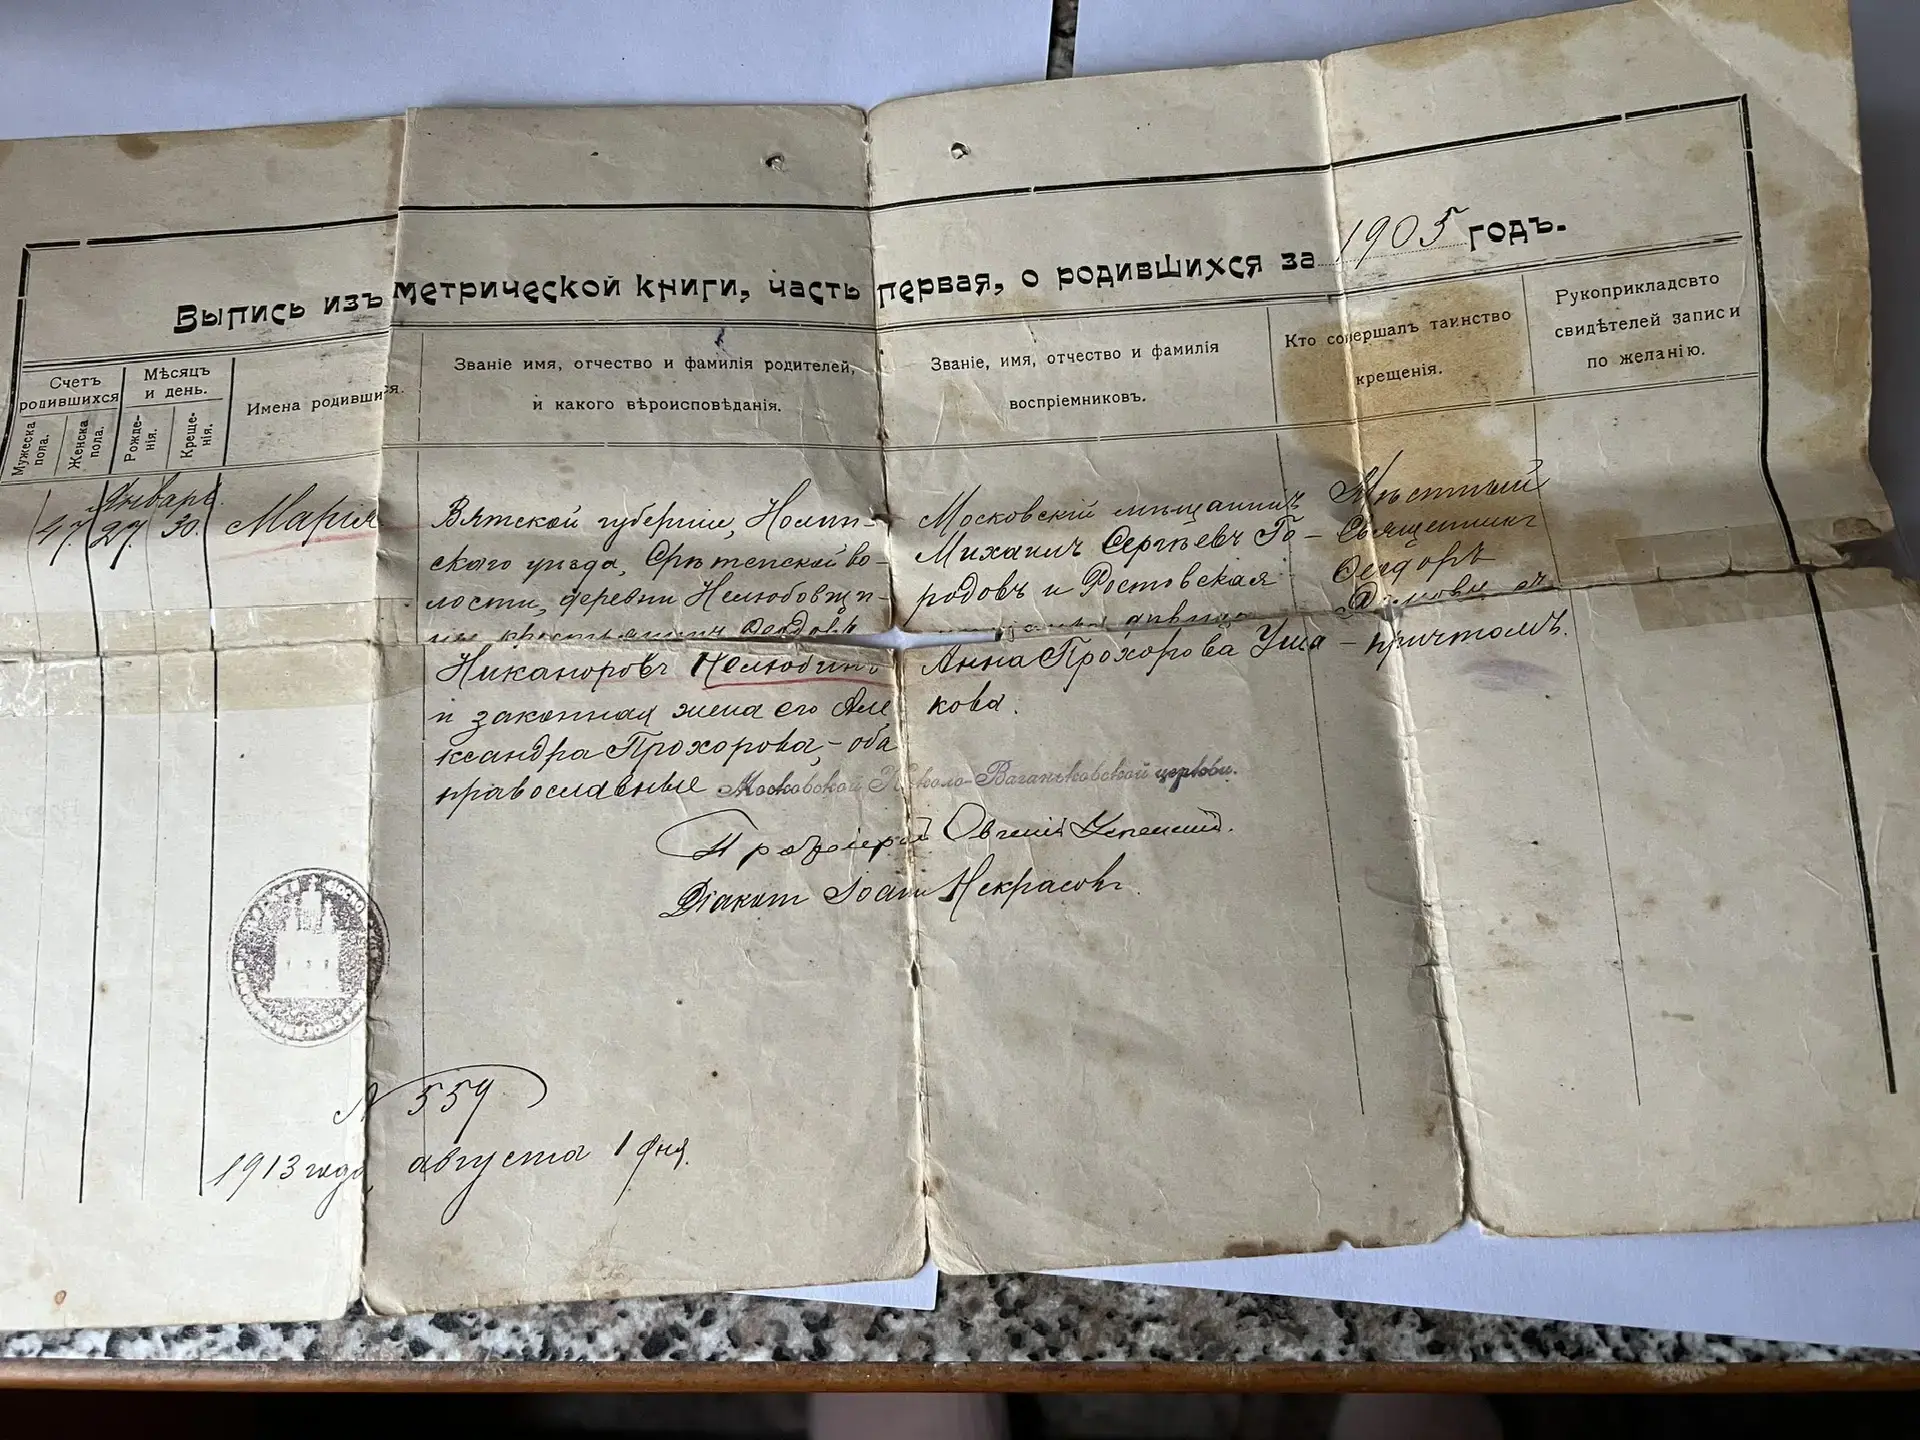 Выпись изъ метрической книги, часть первая, о родившихся за 1905 годъ.
Счетъ родившихся
Мужеска пола.
Женска пола.
Мѣсяцъ и день.
Рожденія.
Крещенія.
Имена родившихся.
Званіе имя, отчество и фамилія родителей,
и какого вѣроисповѣданія.
Званіе, имя, отчество и фамилія
воспріемниковъ.
Кто совершалъ таинство
крещенія.
Рукоприкладсвто
свидѣтелей записи
по желанію.
Январь
47. 27. 30. Марія
Вятской губерніи, Нолин-
скаго уѣзда, Срѣтенской во-
лости, деревни Нелюбовщи-
ны крестьянинъ Ѳеодоръ
Никаноровъ Нелюбинъ
и законная жена его Але
ксандра Прохорова, - оба
православные
Московскій мѣщанинъ
Михаилъ Сергѣевъ Го-
родовъ и Ростовская
дѣвица
Анна Прохорова Уша-
кова.
Мѣстный
Священникъ
Ѳеодоръ
съ
причтомъ.
Московской Николо-Ваганьковской церкви.
Протоіерей Евгеній Успенскій.
Діаконъ Іоаннъ Некрасовъ.
N 559
1913 года августа 1 дня.